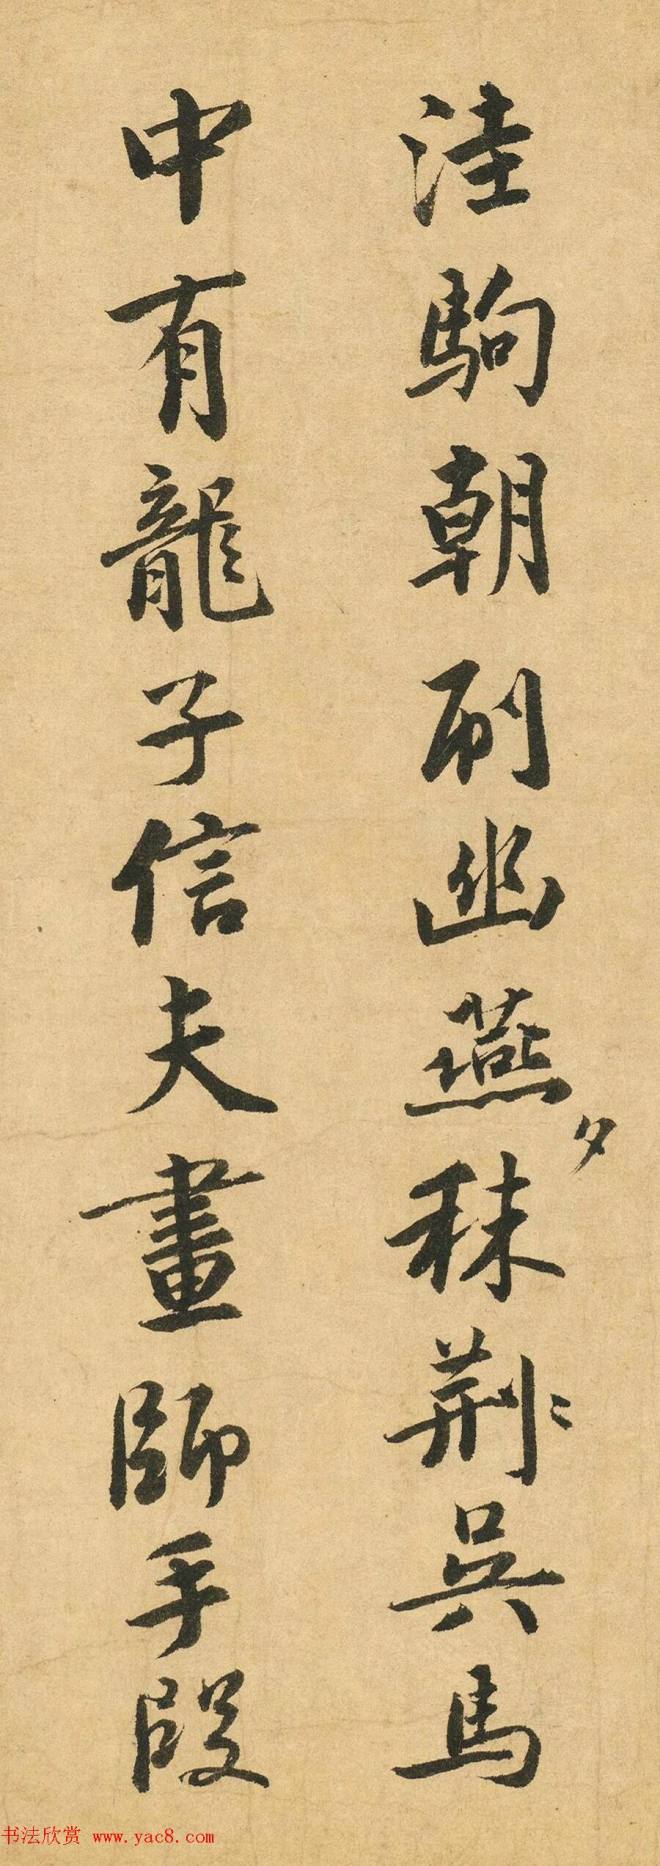 洼駒朝刷幽燕夕秣荆〻吴馬
中有龍子信夫畫師手段
书法欣赏 www.yac8.com